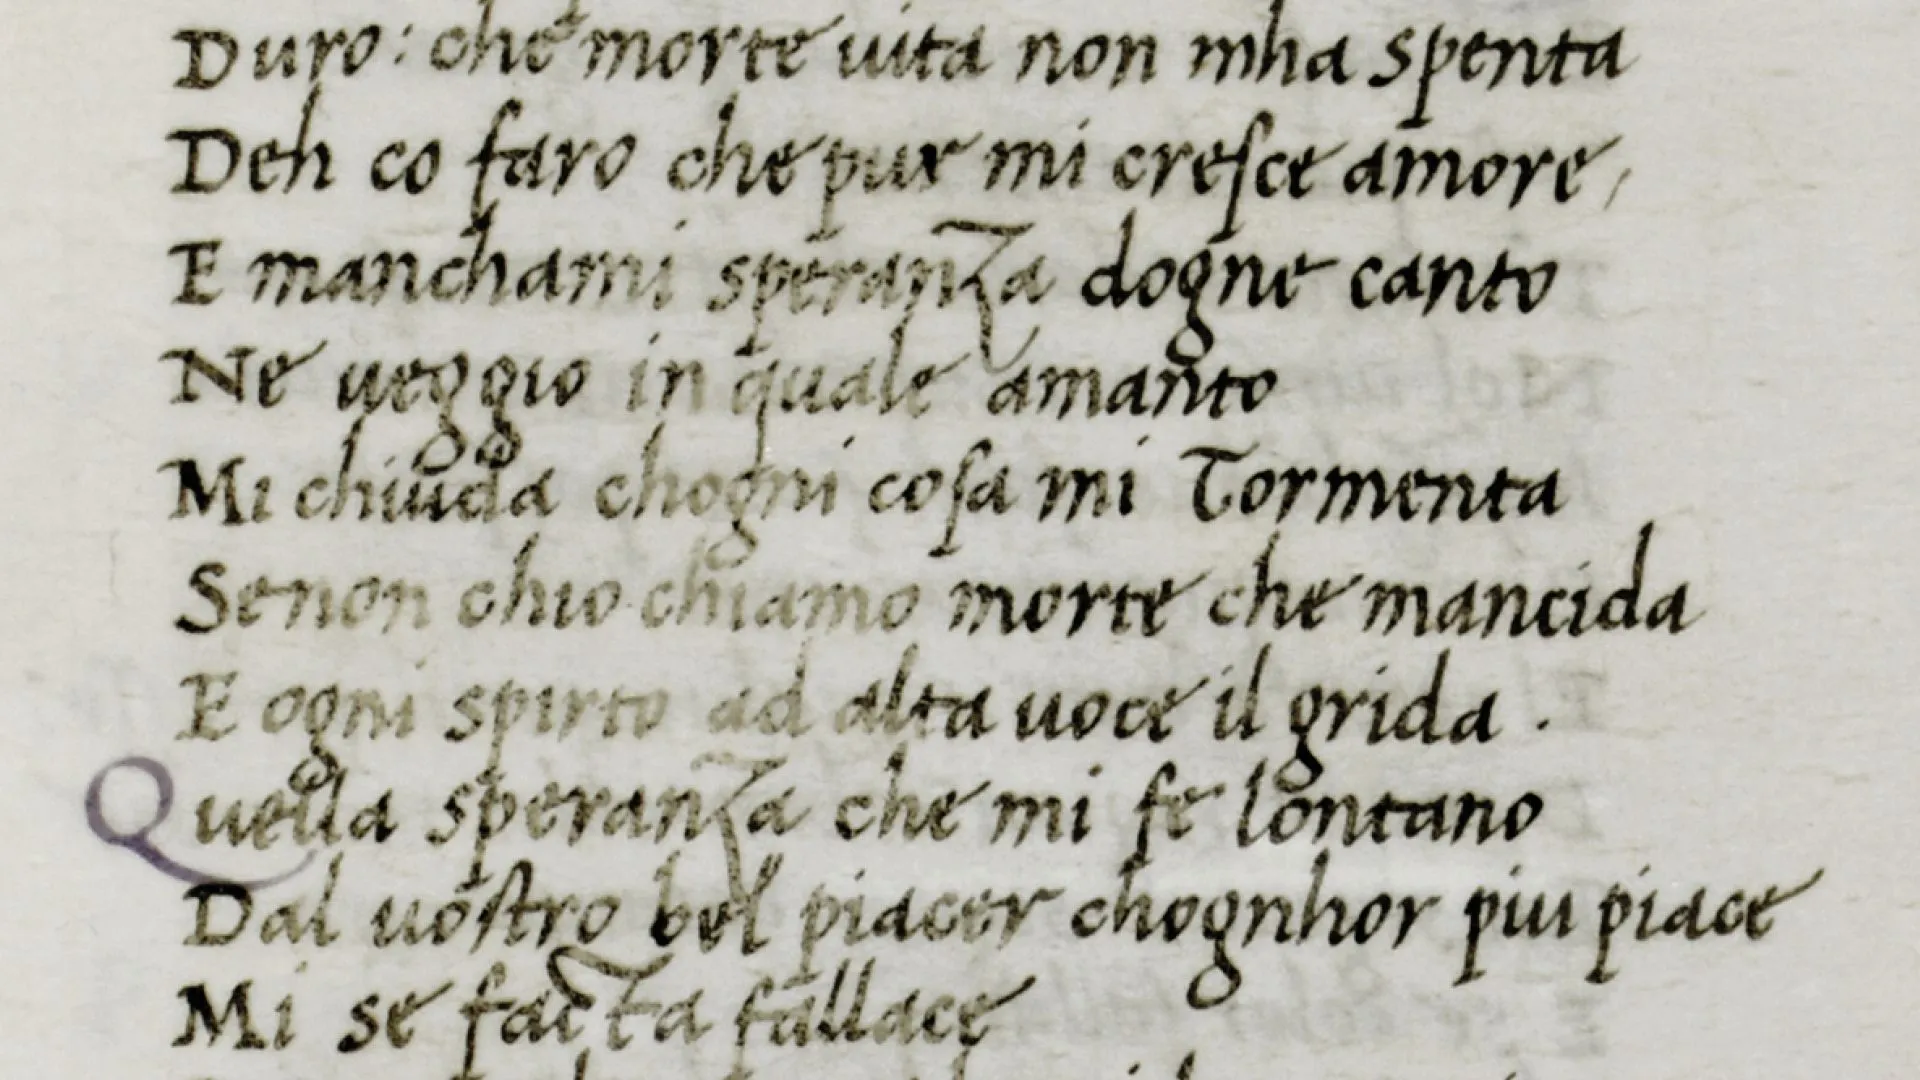 Duro: che morte uita non mha spenta
Deh co faro che pur mi cresce amore,
E manchami speranza dogne canto
Ne ueggio in quale amanto
Mi chiuda chogni cosa mi Tormenta
Senon chio chiamo morte che mancida
E ogni spirto ad alta uoce il grida.
Quella speranza che mi fe lontano
Dal uostro bel piacer chognhor piu piace
Mi se facta fallace